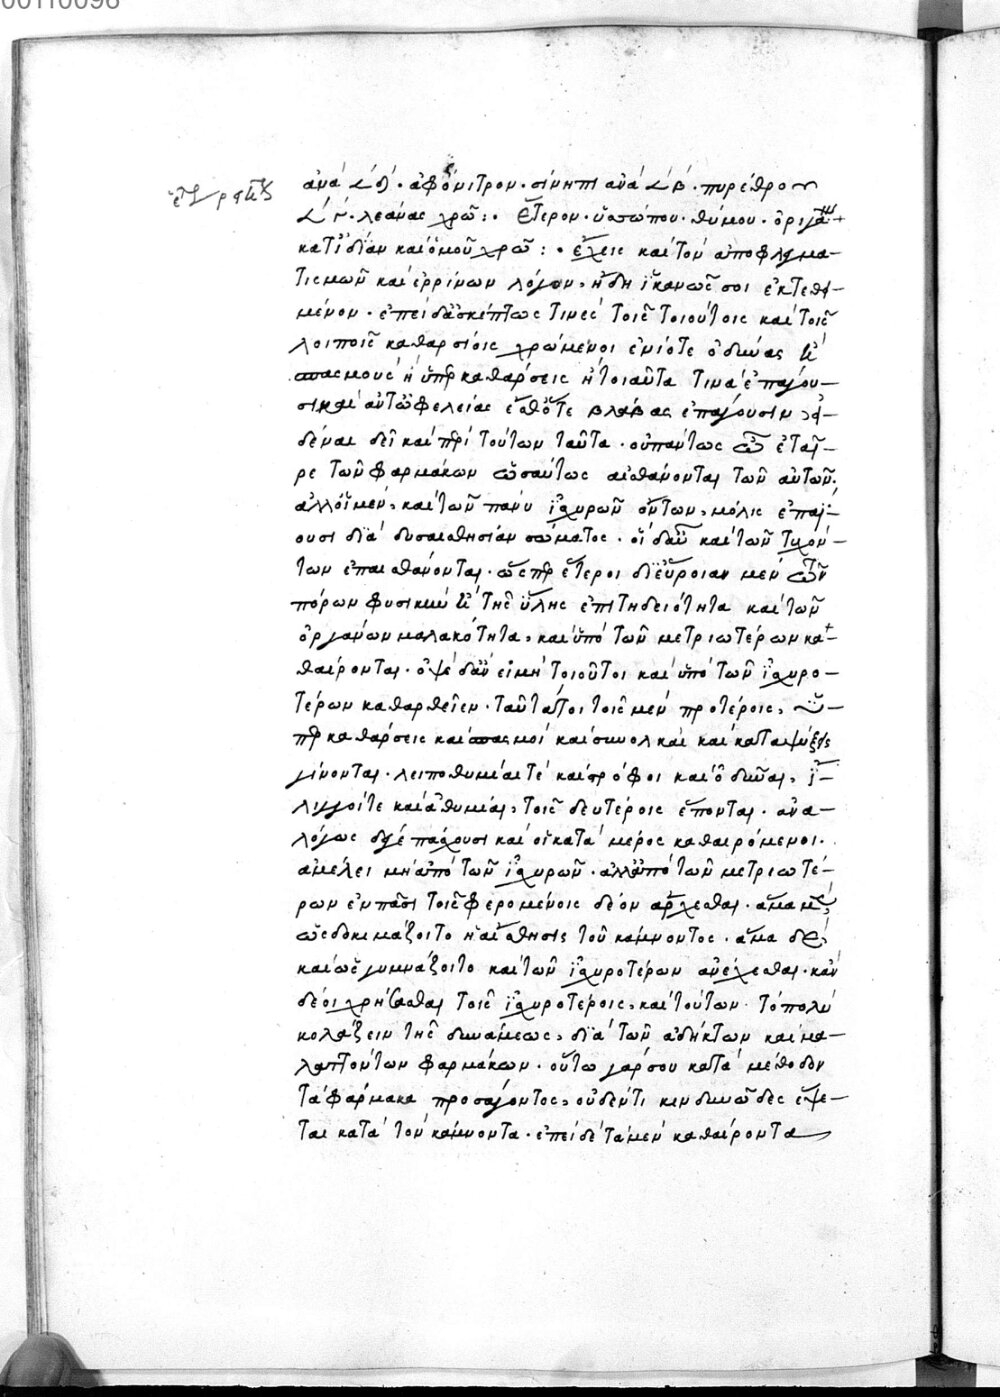 00110098
ἀνὰ 𐅻 δ´. ἀφόνιτρον. σίνηπι ἀνὰ 𐅻 β. πυρέθρον
𐅻 γ´. λεάνας χρῶ :· ἕτερον. ὑσσώπου. θύμου. ὀριγάνου
κατιδίαν καὶ ὁμοῦ χρῶ : · ἔχεις καὶ τὸν ἀποφλεγμα-
τισμῶν καὶ ἐρρίνων λόγον, ἤδη ἱκανῶς σοι ἐκτεθει-
μένον. ἐπεὶ δ' ἀσκέπτως τινὲς τοῖς τοιούτοις καὶ τοῖς
λοιποῖς καθαρσίοις χρώμενοι ἐνίοτε ὀδύνας καὶ
σπασμοὺς ἢ ὑπερκαθάρσεις ἢ τοιαῦτα τινὰ ἐπάγου-
σι καὶ ἀντωφελείας ἔσθ' ὅτε βλάβας ἐπάγουσιν, εἰ-
δέναι δεῖ καὶ περὶ τούτων ταῦτα. οὐ πάντως ὦ ἑταῖ-
ρε τῶν φαρμάκων ὡσαύτως αἰσθάνονται τῶν αὐτῶν.
ἀλλ' οἱ μὲν, καὶ τῶν πάνυ ἰσχυρῶν ὄντων, μόλις ἐπαΐ-
ουσι διὰ δυσαισθησίαν σώματος. οἱ δ' αὖ καὶ τῶν τυχόν-
των ἐπαισθάνονται. ὥσπερ ἕτεροι δι' εὔροιαν μὲν τῶν
πόρων φυσικὴν καὶ τῆς ὕλης ἐπιτηδειότητα καὶ τῶν
ὀργάνων μαλακότητα, καὶ ὑπὸ τῶν μετριωτέρων κα-
θαίρονται. ὀψὲ δ' ἂν εἰ μὴ τοιοῦτοι καὶ ὑπὸ τῶν ἰσχυρο-
τέρων καθαρθεῖεν. ταῦτά τοι τοῖς μὲν προτέροις, ὑ-
περκαθάρσεις καὶ σπασμοὶ καὶ συνολκαὶ καὶ καταψύξεις
γίνονται. λειποθυμίαι τὲ καὶ στρόφοι καὶ ὀδύναι, ἴ-
λιγγοί τε καὶ ἀθυμίαι, τοῖς δευτέροις ἕπονται. ἀνα-
λόγως δέ γε πάσχουσι καὶ οἱ κατὰ μέρος καθαιρόμενοι.
ἀμέλει μὴ ἀπὸ τῶν ἰσχυρῶν. ἀλλ' ἀπὸ τῶν μετριωτέ-
ρων ἐν πᾶσι τοῖς φερομένοις δέον ἄρχεσθαι. ἅμα μὲν,
ὡς δοκιμάζοιτο ἡ αἴσθησις τοῦ κάμνοντος. ἅμα δὲ,
καὶ ὡς γυμνάζοιτο καὶ τῶν ἰσχυροτέρων ἀνέχεσθαι. κἂν
δέοι χρήσασθαι τοῖς ἰσχυροτέροις, καὶ τούτων τὸ πολὺ
κολάζειν τῆς δυνάμεως, διὰ τῶν ἀδήκτων καὶ μα-
λαττόντων φαρμάκων. οὕτω γάρ σου κατὰ μέθοδον
τὰ φάρμακα προσάγοντος, οὐδέν τι κινδυνῶδες ἕψε-
ται κατὰ τὸν κάμνοντα. ἐπεὶ δὲ τὰ μὲν καθαίροντα